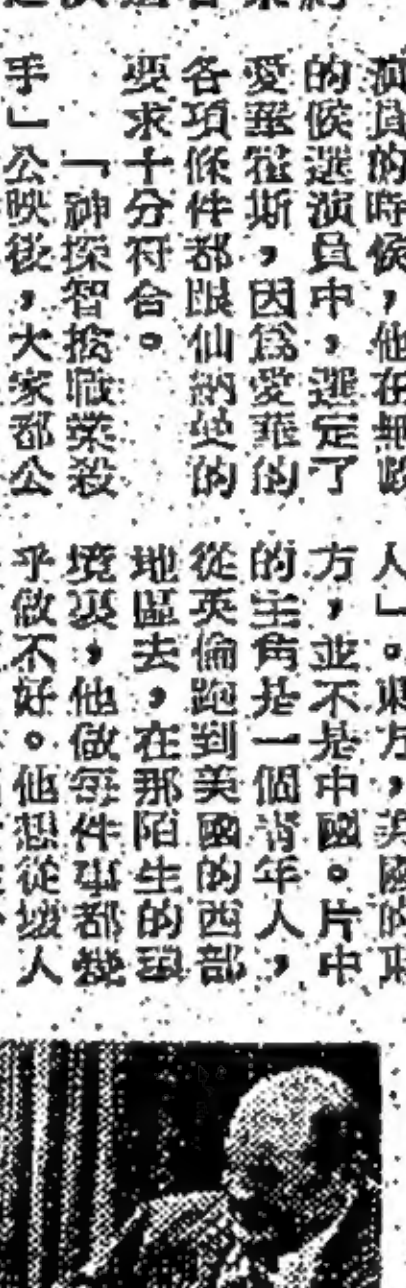 演員的時候，他在無數
的候選演員中，選定了
愛華霍斯，因為愛華的
各項條件都跟仙納的
要求十分符合。
「神探智擒職業殺
手」公映後，大家都公
人」。東方，美國的東
方，並不是中國。片中
的主角是一個青年人，
從英倫跑到美國的西部
地區去，在那陌生的環
境裏，他做每件事都幾
乎做不好。他想從壞人